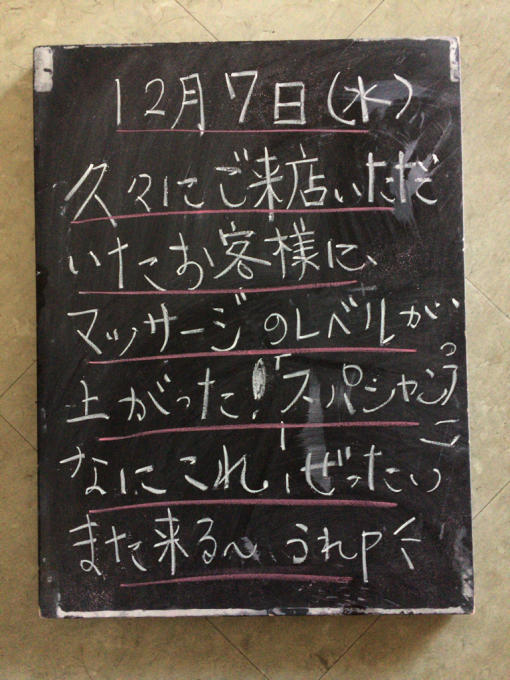 12月7日(水)
久々にご来店いただ
いたお客様に、
マッサージのレベルが
上がった!「スパシャンプ」って
なにこれ、ぜったい
また来る〜 うれP